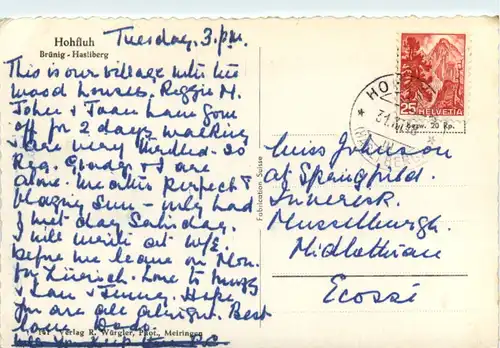 Hohfluh
Brünig - Hasliberg
Tuesday, 3. p.m.
This is our village with its
wood houses. Reggie M.
John & Joan have gone
off for 2 days walking
& are very thrilled - so
Reg. & I are
alone. Weather perfect &
blazing sun - only had
1 wet day Saturday.
I will write at W/E.
before we leave on Mon.
for Zürich. Love to
& Ian & Jenny. Hope
you are all alright. Best
love. Dods.
Fabrication Suisse
25
HELVETIA
HO
31.
Miss Johnson
at Springfield.
Inveresk.
Musselburgh.
Midlothian
Ecosse
Verlag R. Würgler, Phot., Meiringen